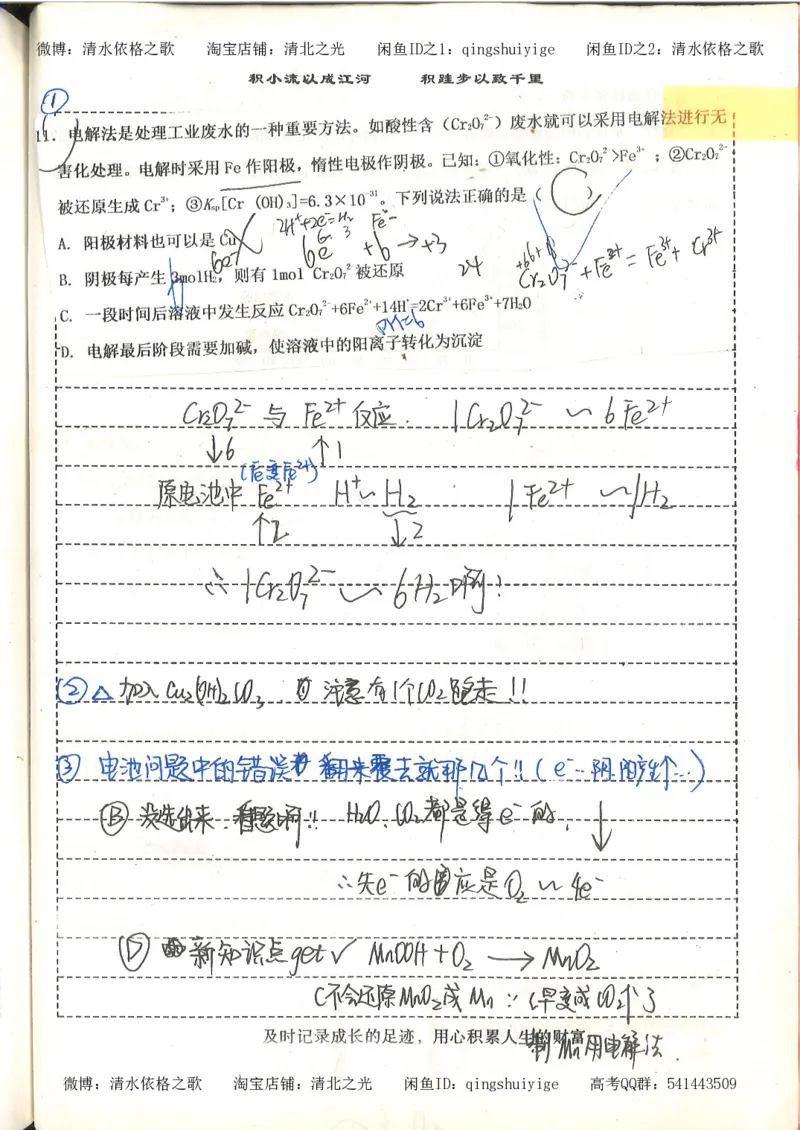 微博：清水依格之歌 淘宝店铺：清北之光 闲鱼ID之1：qingshuiyige 闲鱼ID之2：清水依格之歌
积小流以成江河 积跬步以致千里
①
11. 电解法是处理工业废水的一种重要方法。如酸性含（Cr₂O₇²⁻）废水就可以采用电解法进行无
害化处理。电解时采用 Fe 作阳极，惰性电极作阴极。已知：①氧化性：Cr₂O₇²⁻>Fe³⁺ ；②Cr₂O₇²⁻
被还原生成 Cr³⁺；③Ksp[Cr (OH)₃]=6.3×10⁻³¹。下列说法正确的是（ C ）
2H⁺+2e⁻=H₂
A. 阳极材料也可以是 Cu
6e +6→+3 24 Cr₂O₇²⁻+Fe²⁺=Fe³⁺+Cr³⁺
B. 阴极每产生 3molH₂，则有 1mol Cr₂O₇²⁻被还原
C. 一段时间后溶液中发生反应 Cr₂O₇²⁻+6Fe²⁺+14H⁺=2Cr³⁺+6Fe³⁺+7H₂O
PH=6
D. 电解最后阶段需要加碱，使溶液中的阳离子转化为沉淀
Cr₂O₇²⁻与 Fe²⁺反应. 1Cr₂O₇²⁻ ~ 6Fe²⁺
↓6 ↑1
(Fe变Fe²⁺)
原电池中 Fe²⁺ H⁺~H₂ 1Fe²⁺ ~ 1H₂
↑2 ↓2
∴ 1Cr₂O₇²⁻ ~ 6H₂啊!
② △ 加入 Cu₂(OH)₂CO₃, 注意有1个CO₂跑走!!
③ 电池问题中的错误 翻来覆去就那几个!! (e⁻...阴.阳...)
Ⓑ 没选出来. 看题啊!! H₂O、CO₂都是得e⁻的, ↓
∴失e⁻的应是O₂ ~ 4e⁻
Ⓓ 新知识点get✓ MnOOH+O₂ → MnO₂
(不会还原MnO₂成Mn ∵ (早变成CO₂了
用电解法.
及时记录成长的足迹，用心积累人生的财富
微博：清水依格之歌 淘宝店铺：清北之光 闲鱼ID：qingshuiyige 高考QQ群：541443509